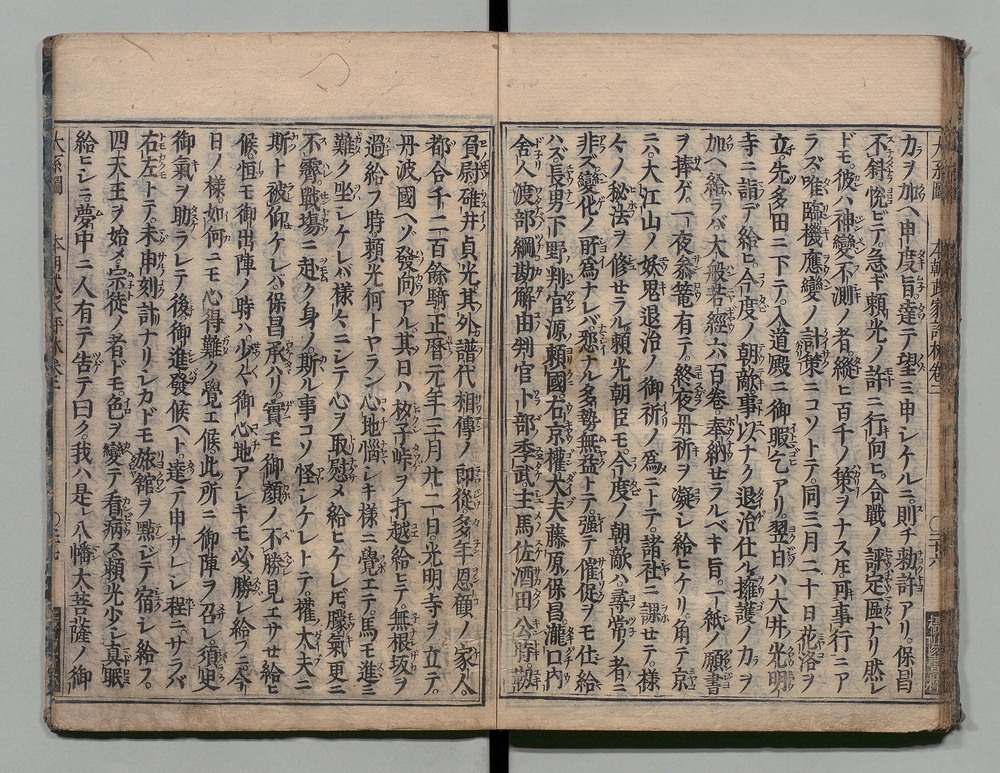 力ヲ加ヘ申度旨達テ望ミ申シケルニ則チ勅許アリ保昌
不斜悅ビテ急ギ頼光ノ許ニ行向ヒ合戰ノ評定區ナリ然レ
ドモ彼ハ神變不測ノ者縱ヒ百千ノ策ヲナス𪜈可事行ニア
ラズ唯臨機應變ノ計策ニコソトテ同三月二十日花洛ヲ
立先多田ニ下テ入道殿ニ御暇乞アリ翌日ハ大井光明
寺ニ詣デ給ヒ今度ノ朝敵事以ナク退治仕ル擁護ノ力ヲ
加ヘ給ラバ大般若經六百卷奉納セラルベキ旨一紙ノ願書
ヲ捧ゲ一夜參篭有テ終夜丹祈ヲ凝シ給ヒケリ角テ京
ニハ大江山ノ妖鬼退治ノ御祈ノ爲ニトテ諸社ニ課セテ樣
々ノ秘法ヲ修セラル頼光朝臣モ今度ノ朝敵ハ尋常ノ者ニ
非ズ變化ノ所爲ナレバ邪ナル多勢無益トテ強テ催促ヲモ仕給
ハズ長男下野判官源頼國右京權大夫藤原保昌瀧口内
舍人渡部綱勘解由判官卜部季武主馬佐酒田公時靱
負尉碓井貞光其外譜代相傳ノ郎從多年恩顧ノ家人
都合千二百餘騎正暦元年三月廿二日光明寺ヲ立テ
丹波國ヘゾ發向アル其日ハ枚子峠ヲ打越給ヒテ無根坂ヲ
過給フ時頼光何トヤラン心地惱シキ樣ニ覺エテ馬モ進ミ
難ク坐シケレバ樣々ニシテ心ヲ取慰メ給ヒケレ𪜈朦氣更ニ
不霽戰塲ニ赴ク身ノ斯ル事コソ怪シケレトテ權太夫ニ
斯ト被仰ケレバ保昌承ハリ實モ御顔ノ不勝見エサセ給ヒ
候恒モ御出陣ノ時ハ少々御心地アシキモ必ス勝レ給フニ今
日ノ樣如何ニモ心得難ク覺エ候此所ニ御陣ヲ召レ須臾
御氣ヲ助ラレテ後御進發候ヘト達テ申サレシ程ニサラバ
右左トテ未申刻計ナリシカドモ旅館ヲ點ジテ宿シ給フ
四天王ヲ始メ宗徒ノ者ドモ色ヲ變テ看病ス頼光少シ眞眠
給ヒシニ夢中ニ人有テ告テ曰ク我ハ是八幡大菩薩ノ御